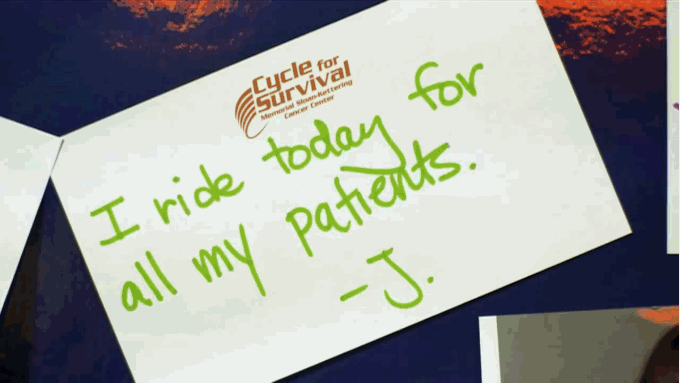 Cycle for
Survival
Memorial Sloan-Kettering
Cancer Center
I ride today for
all my patients.
-J.